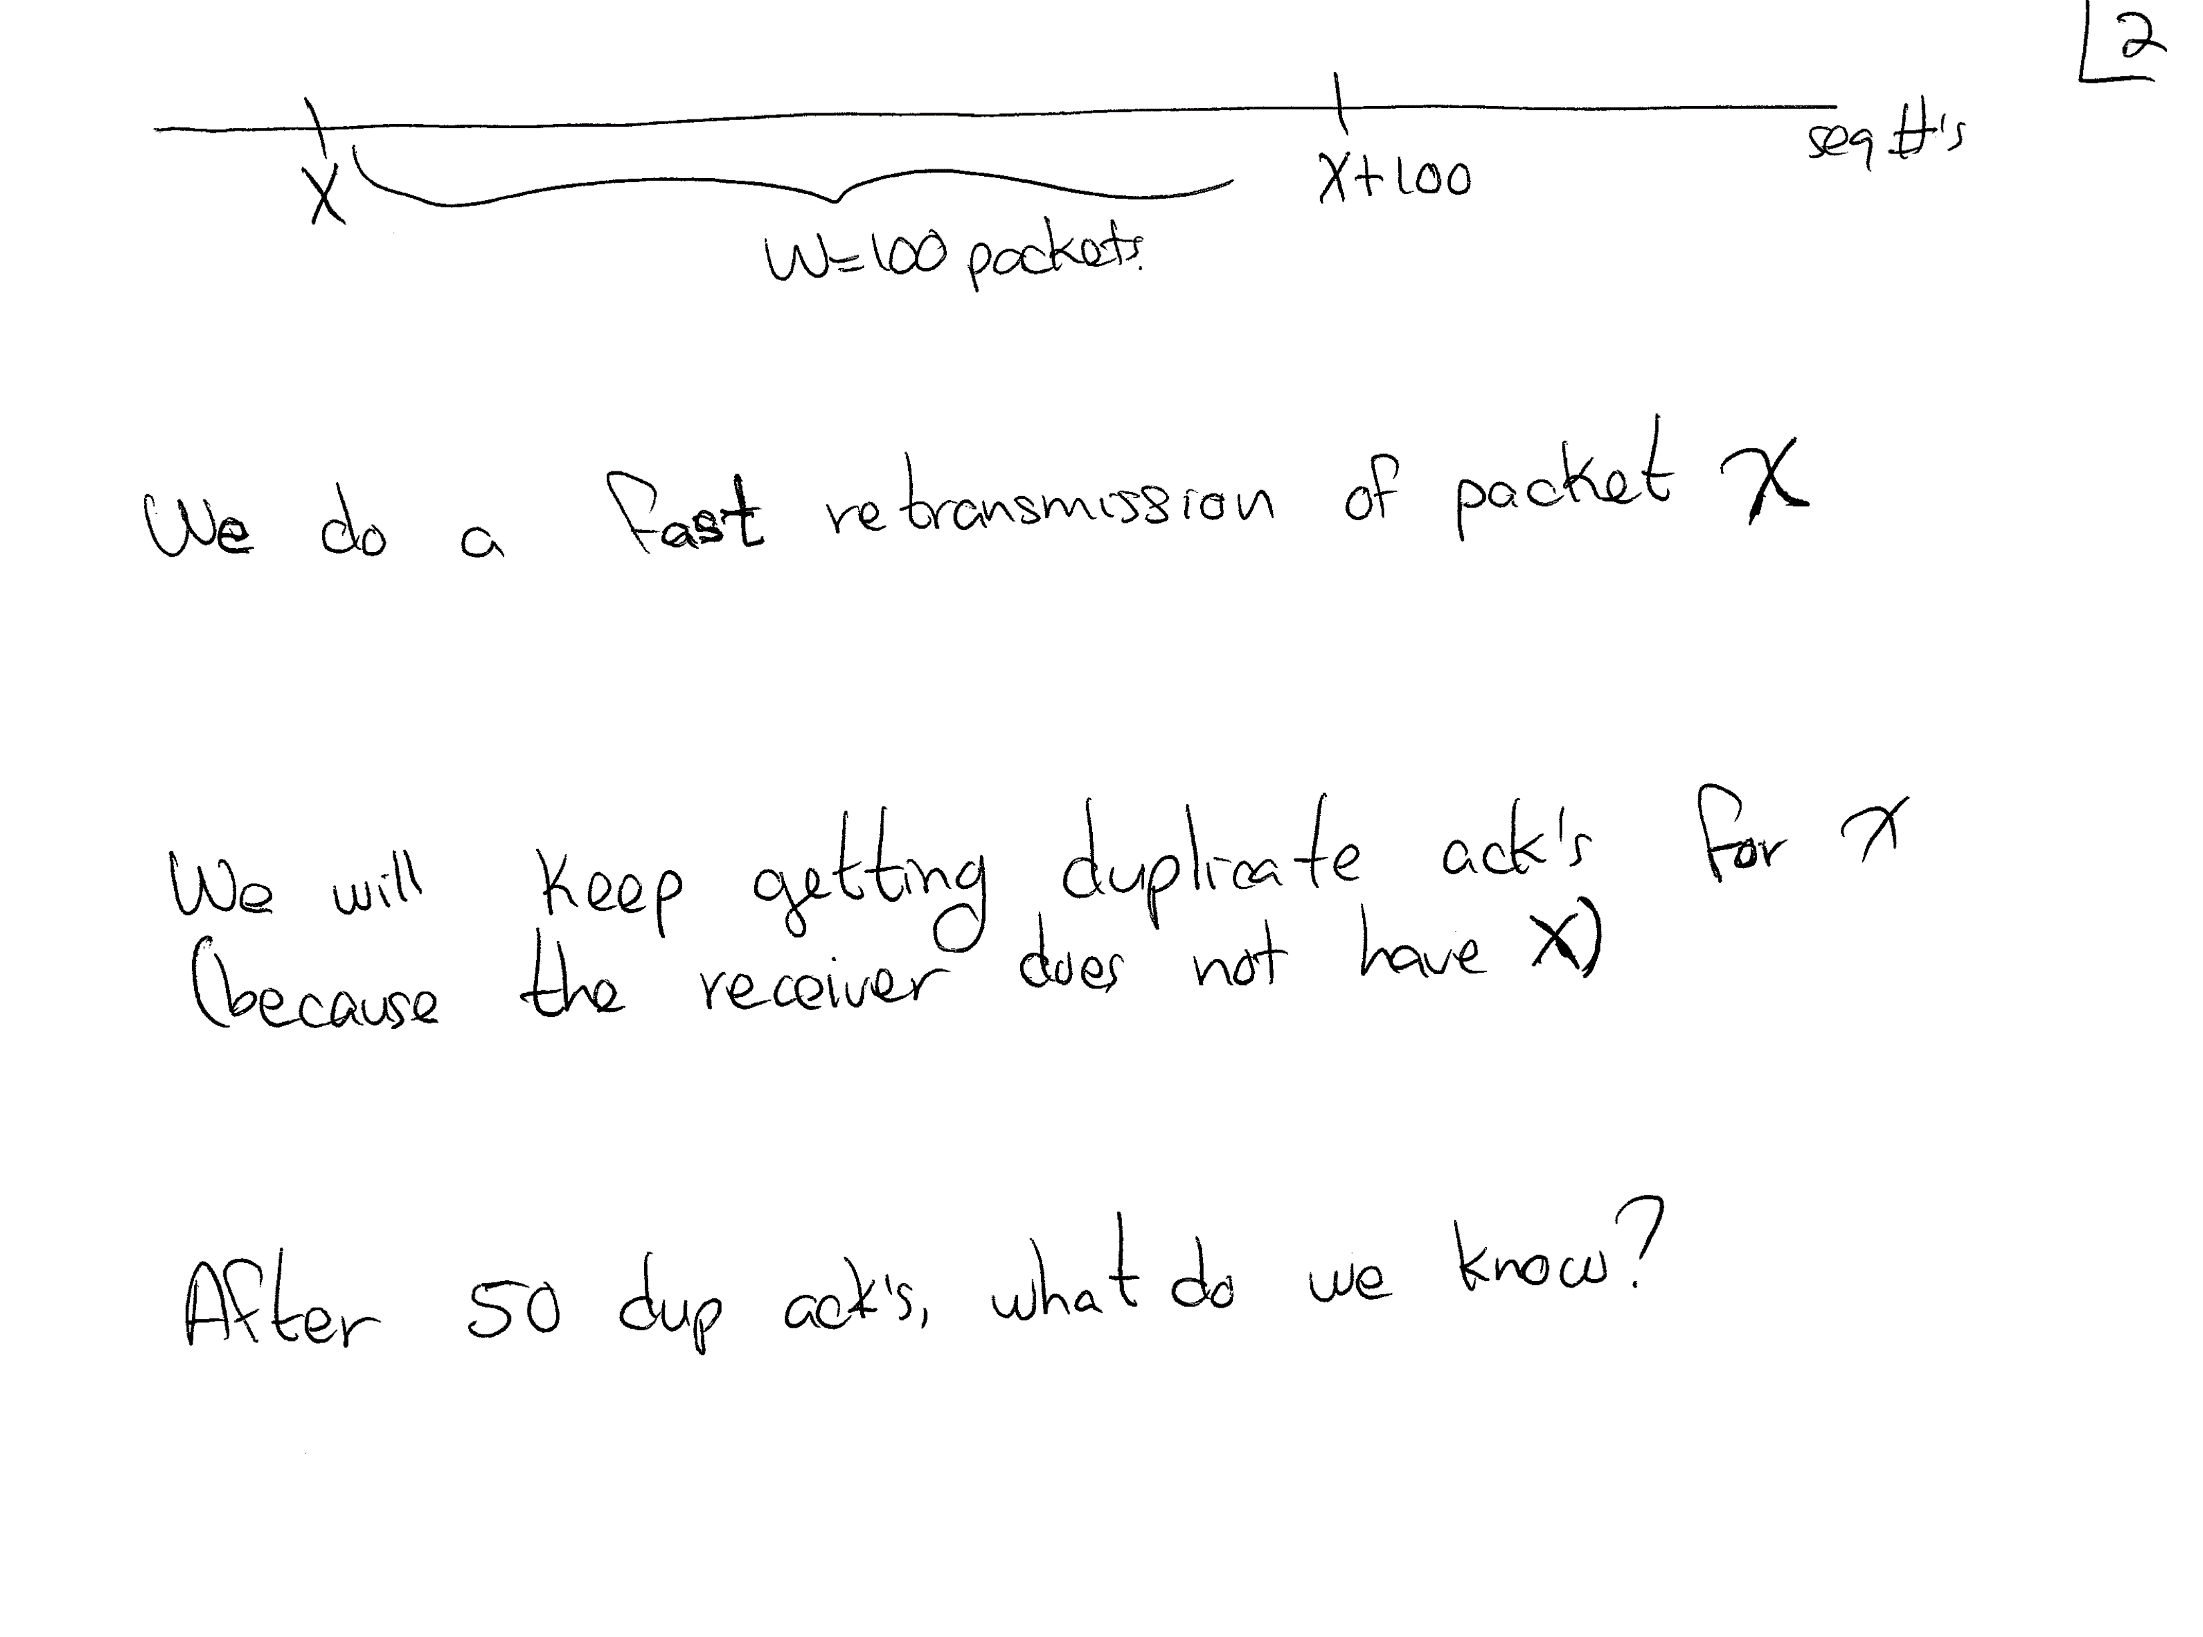 2
seq #'s
X
X+100
W=100 packets.
We do a fast retransmission of packet X
We will keep getting duplicate ack's for x
(because the receiver does not have X)
After 50 dup ack's, what do we know?